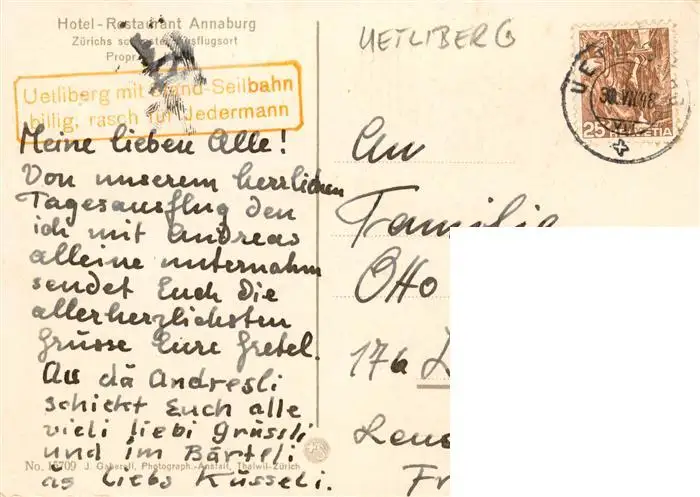 Hotel-Restaurant Annaburg
Zürichs schönster Ausflugsort
Propr.
Uetliberg mit Stand-Seilbahn
billig, rasch für Jedermann
Meine lieben Alle!
Von unserem herrlichen
Tagesausflug den
ich mit Andreas
alleine unternahm
sendet Euch die
allerherzlichsten
Grüsse Eure Gretel.
Au dä Andresli
schickt Euch alle
vieli liebi Grüssli
und im Bärteli
äs liebs Küsseli.
No. 15709 J. Gaberell, Photograph.-Anstalt, Thalwil-Zürich
UETLIBERG
30.VIII.48
25 HELVETIA
An
Familie
Otto
17a